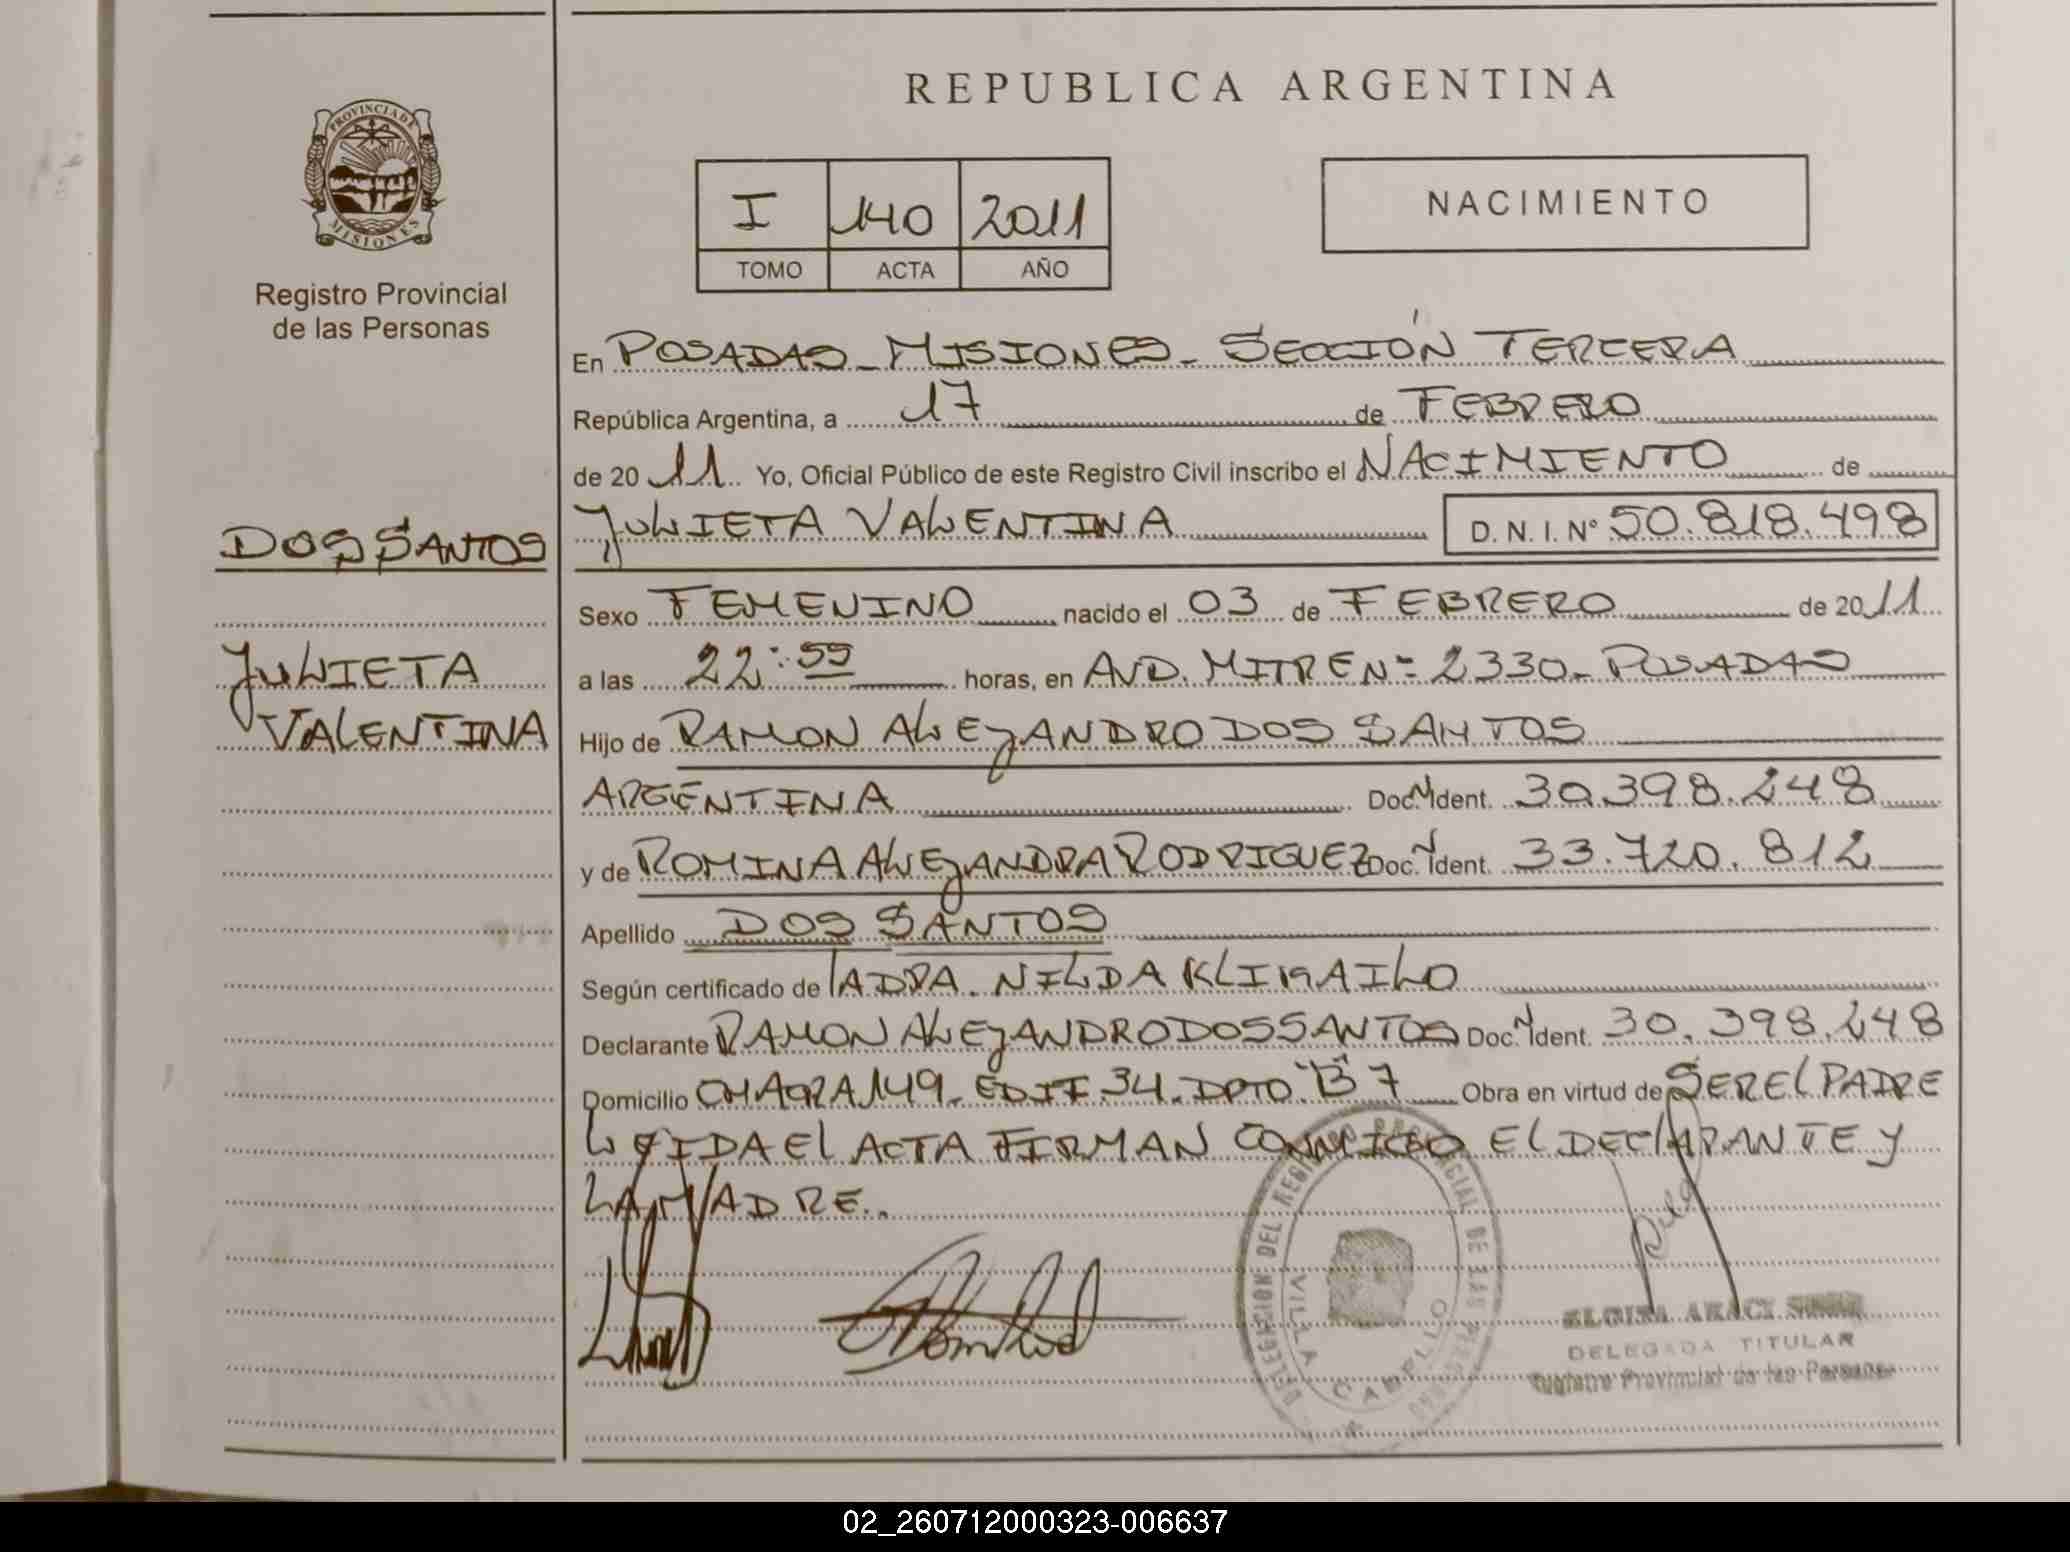 REPUBLICA ARGENTINA
PROVINCIA DE
MISIONES
Registro Provincial
de las Personas
I 140 2011
TOMO ACTA AÑO
NACIMIENTO
En POSADAS - MISIONES - SECCIÓN TERCERA
República Argentina, a 17 de FEBRERO
de 2011 Yo, Oficial Público de este Registro Civil inscribo el NACIMIENTO de
JULIETA VALENTINA D. N. I. Nº 50.818.498
DOS SANTOS
JULIETA
VALENTINA
Sexo FEMENINO nacido el 03 de FEBRERO de 2011
a las 22:55 horas, en AVD. MITRE Nº 2330 - POSADAS
Hijo de RAMON ALEJANDRO DOS SANTOS
ARGENTINA Doc. Ident. 30.398.248
y de ROMINA ALEJANDRA RODRIGUEZ Doc. Ident. 33.720.812
Apellido DOS SANTOS
Según certificado de LA DRA. NILDA
Declarante RAMON ALEJANDRO DOS SANTOS Doc. Ident. 30.398.248
Domicilio CHACRA 149 - EDIF 34 - DPTO. "B" 7 Obra en virtud de SER EL PADRE
LEIDA EL ACTA FIRMAN CONMIGO EL DECLARANTE Y
LA MADRE.
DELEGACION DEL REGISTRO PROVINCIAL DE LAS PERSONAS
VILLA CABELLO
DELEGADA TITULAR
Registro Provincial de las Personas
02_260712000323-006637